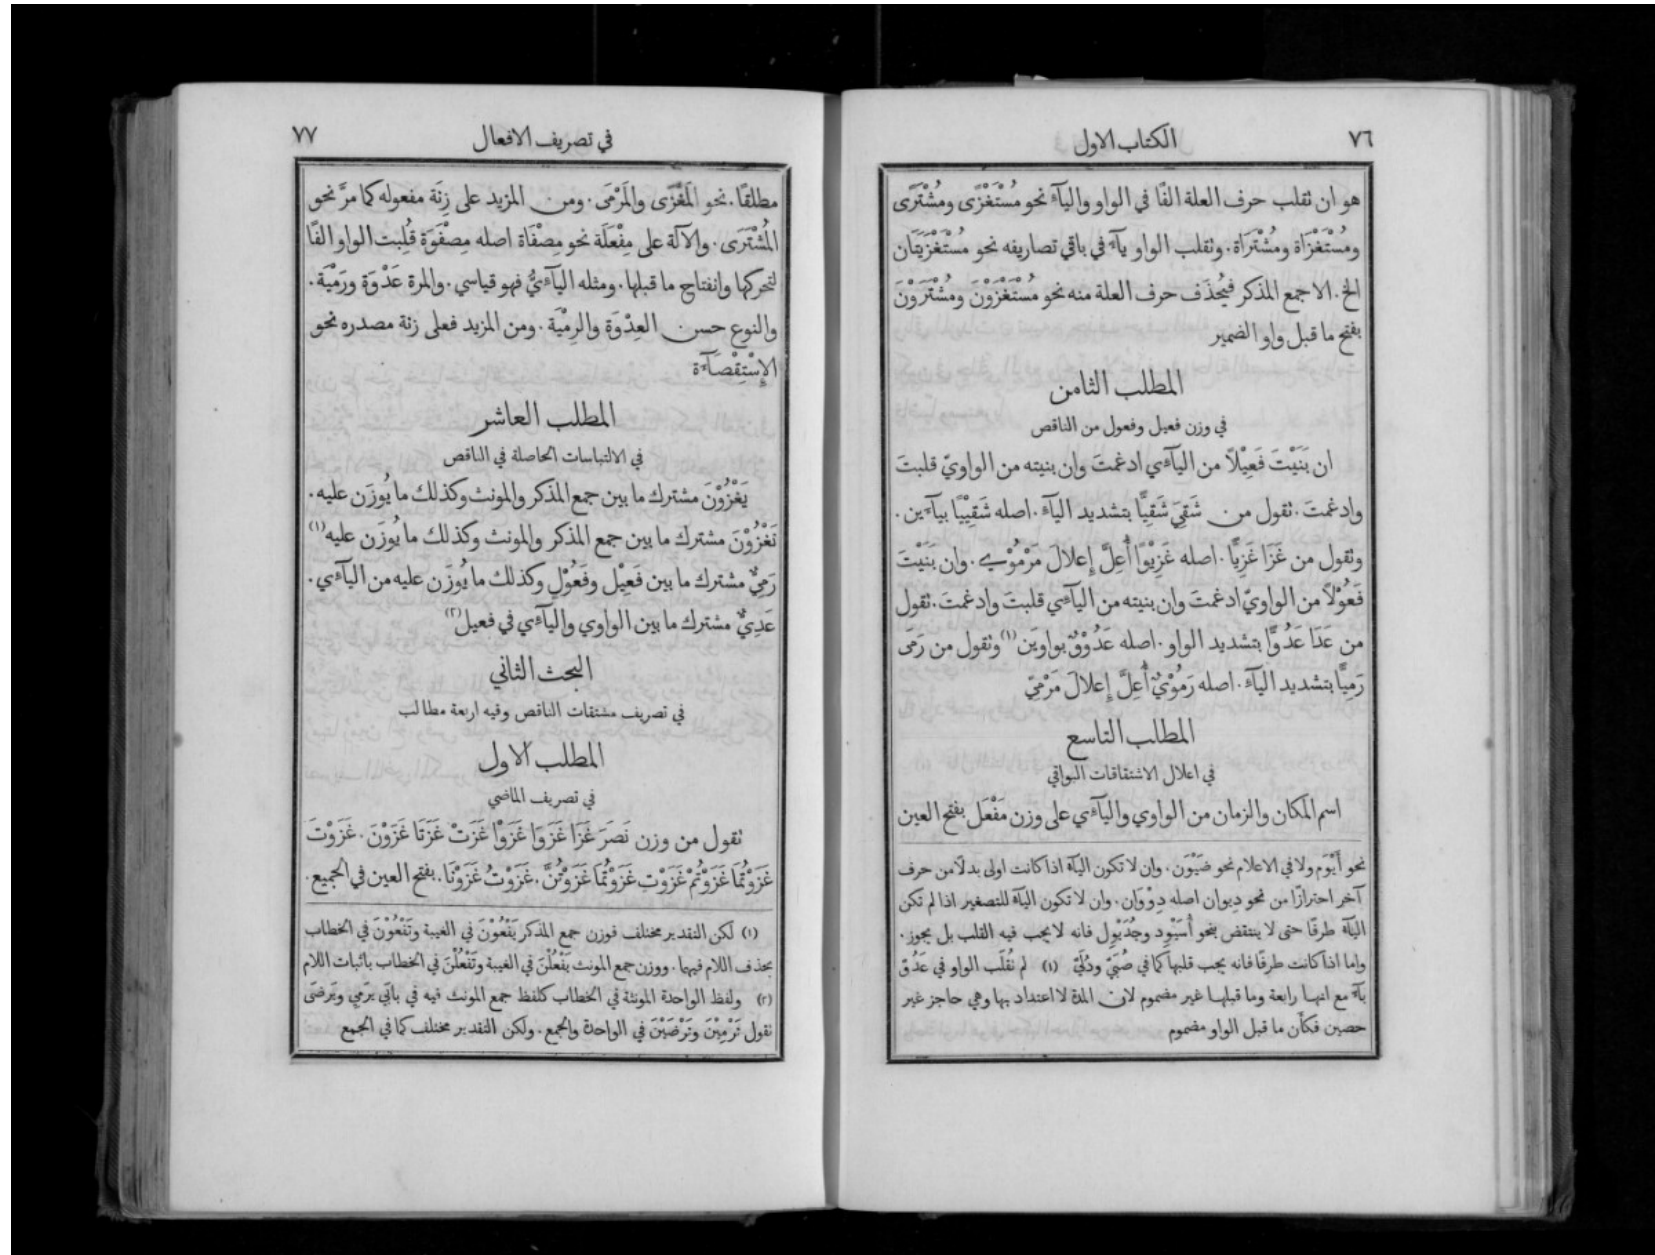 ٧٦
الكتاب الاول
هو ان تقلب حرف العلة الفًا في الواو واليآء نحو مُسْتَغْزًى ومُشْتَرًى
ومُسْتَغْزَاة ومُشْتَرَاة. وتقلب الواو يآء في باقي تصاريفه نحو مُسْتَغْزَيَتَان
الخ. الا جمع المذكر فيُحْذَف حرف العلة منه نحو مُسْتَغْزَوْنَ ومُشْتَرَوْنَ
بفتح ما قبل واو الضمير
المطلب الثامن
في وزن فعيل وفعول من الناقص
ان بَنَيْتَ فَعِيْلاً من اليآءي ادغمتَ وان بنيته من الواويّ قلبتَ
وادغمتَ. تقول من شَقَيَ شَقِيًّا بتشديد اليآء. اصله شَقِيْيًا بيآءين.
وتقول من غَزَا غَزِيًّا. اصله غَزِيْوًا أُعِلَّ إِعلالَ مَرْمُوْي. وان بَنَيْتَ
فَعُوْلاً من الواويّ ادغمتَ وان بنيته من اليآءي قلبتَ وادغمتَ. تقول
من عَدَا عَدُوًّا بتشديد الواو. اصله عَدُوْوٌ بواوين (١) وتقول من رَمَى
رَميًّا بتشديد اليآء. اصله رَمُوْيٌ أُعِلَّ إِعلالَ مَرْمِيّ
المطلب التاسع
في اعلال الاشتقاقات البواقي
اسم المكان والزمان من الواوي واليآءي على وزن مَفْعَل بفتح العين
نحو أَيْوَم ولا في الاعلام نحو ضَيْوَن. وان لا تكون اليآء اذا كانت اولى بدلاً من حرف
آخر احترازًا من نحو دِيوان اصله دِوْوَان. وان لا تكون اليآء للتصغير اذا لم تكن
اليآء طرفًا حتى لا ينتقض بنحو أُسَيْوِد وجُدَيْوِل فانه لا يجب فيه القلب بل يجوز.
واما اذا كانت طرفًا فانه يجب قلبها كما في صُبَيّ ودُلَيّ (١) لم تُقلَب الواو في عَدُوّ
يآء مع انها رابعة وما قبلها غير مضموم لان المدة لا اعتداد بها وهي حاجز غير
حصين فكأن ما قبل الواو مضموم
في تصريف الافعال
٧٧
مطلقًا. نحو المَغْزَى والمَرْمَى. ومن المزيد على زِنَة مفعوله كما مرَّ نحو
المُشْتَرَى. والآلة على مِفْعَلَة نحو مِصْفَاة اصله مِصْفَوَة قُلِبت الواو الفًا
لتحركها وانفتاح ما قبلها. ومثله اليآءيُّ فهو قياسي. والمرة عَدْوَة ورَمْيَة.
والنوع حسن العِدْوَة والرِمْيَة. ومن المزيد فعلى زنة مصدره نحو
الإِسْتِقْصَآءة
المطلب العاشر
في الالتباسات الحاصلة في الناقص
يَغْزُوْنَ مشترك ما بين جمع المذكر والمونث وكذلك ما يُوزَن عليه.
تَغْزُوْنَ مشترك ما بين جمع المذكر والمونث وكذلك ما يُوزَن عليه (١)
رَمِيٌّ مشترك ما بين فَعِيْل وفَعُوْل وكذلك ما يُوزَن عليه من اليآءي.
عَدِيٌّ مشترك ما بين الواوي واليآءي في فعيل (٢)
البحث الثاني
في تصريف مشتقات الناقص وفيه اربعة مطالب
المطلب الاول
في تصريف الماضي
تقول من وزن نَصَرَ غَزَا غَزَوَا غَزَوْا غَزَتْ غَزَتَا غَزَوْنَ. غَزَوْتَ
غَزَوْتُمَا غَزَوْتُمْ غَزَوْتِ غَزَوْتُمَا غَزَوْتُنَّ. غَزَوْتُ غَزَوْنَا. بفتح العين في الجميع.
(١) لكن التقدير مختلف فوزن جمع المذكر يَفْعُوْنَ في الغيبة وتَفْعُوْنَ في الخطاب
بحذف اللام فيهما. ووزن جمع المونث يَفْعُلْنَ في الغيبة وتَفْعُلْنَ في الخطاب باثبات اللام
(٢) ولفظ الواحدة المونثة في الخطاب كلفظ جمع المونث فيه في بابَي يرمي ويَرضَى
تقول تَرْمِيْنَ وتَرْضَيْنَ في الواحدة والجمع. ولكن التقدير مختلف كما في الجمع